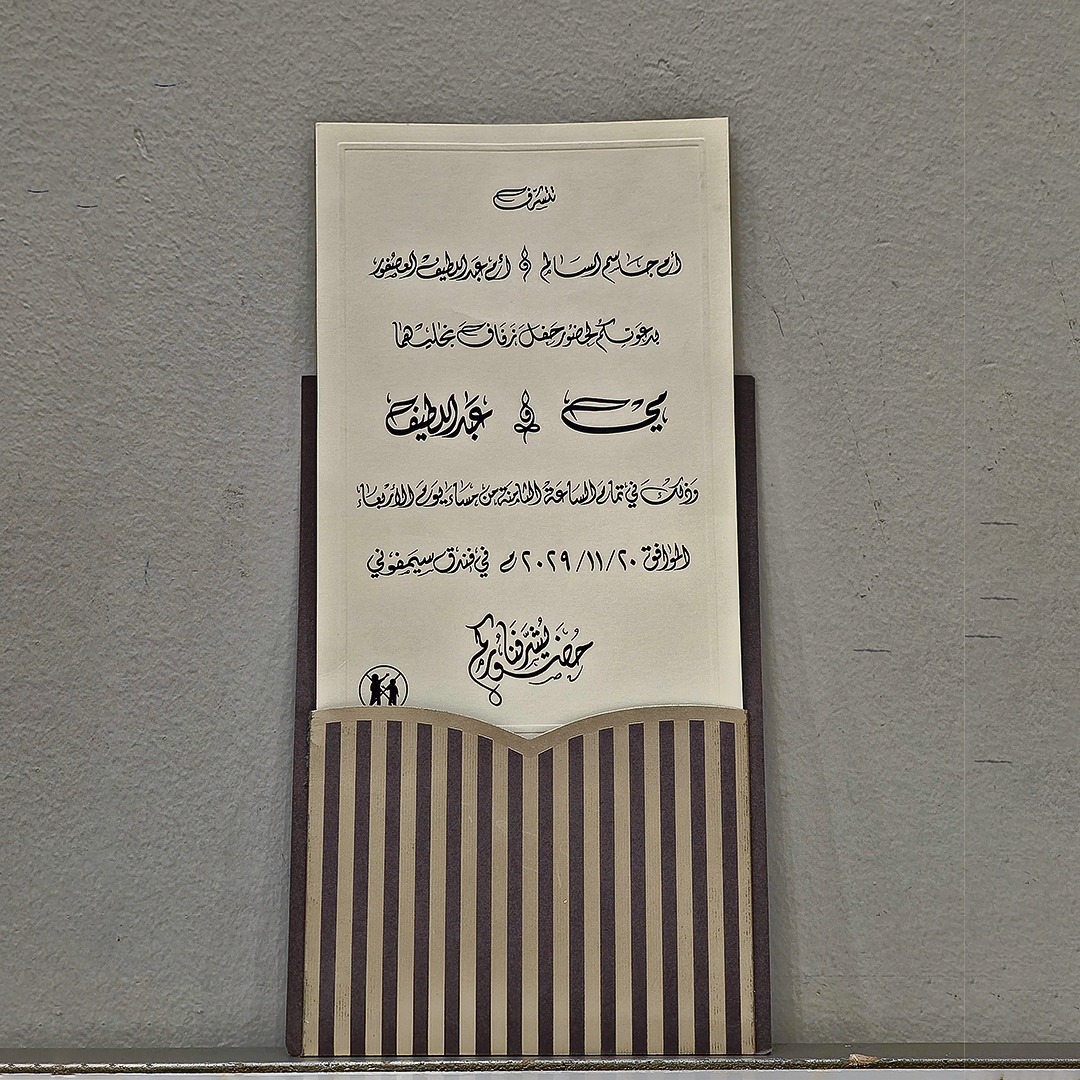 تتشرّف
أم جاسم السالم و أم عبداللطيف العصفور
بدعوتكم لحضور حفل زفاف نجليهما
مي و عبداللطيف
وذلك في تمام الساعة الثامنة من مساء يوم الأربعاء
الموافق ٢٠ /١١/ ٢٠٢٩م في فندق سيمفوني
حضوركم يشرّفنا